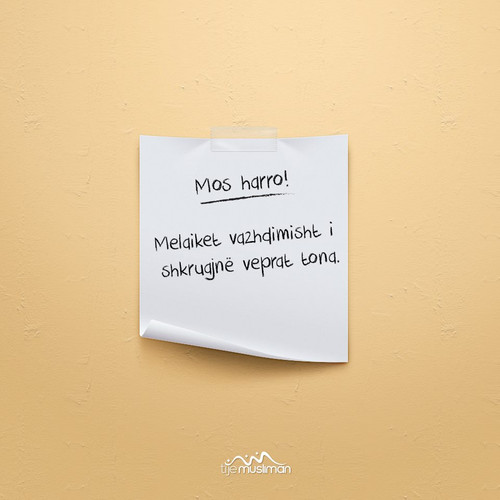 Mos harro!
Melaiket vazhdimisht i
shkruajnë veprat tona.
tije musliman